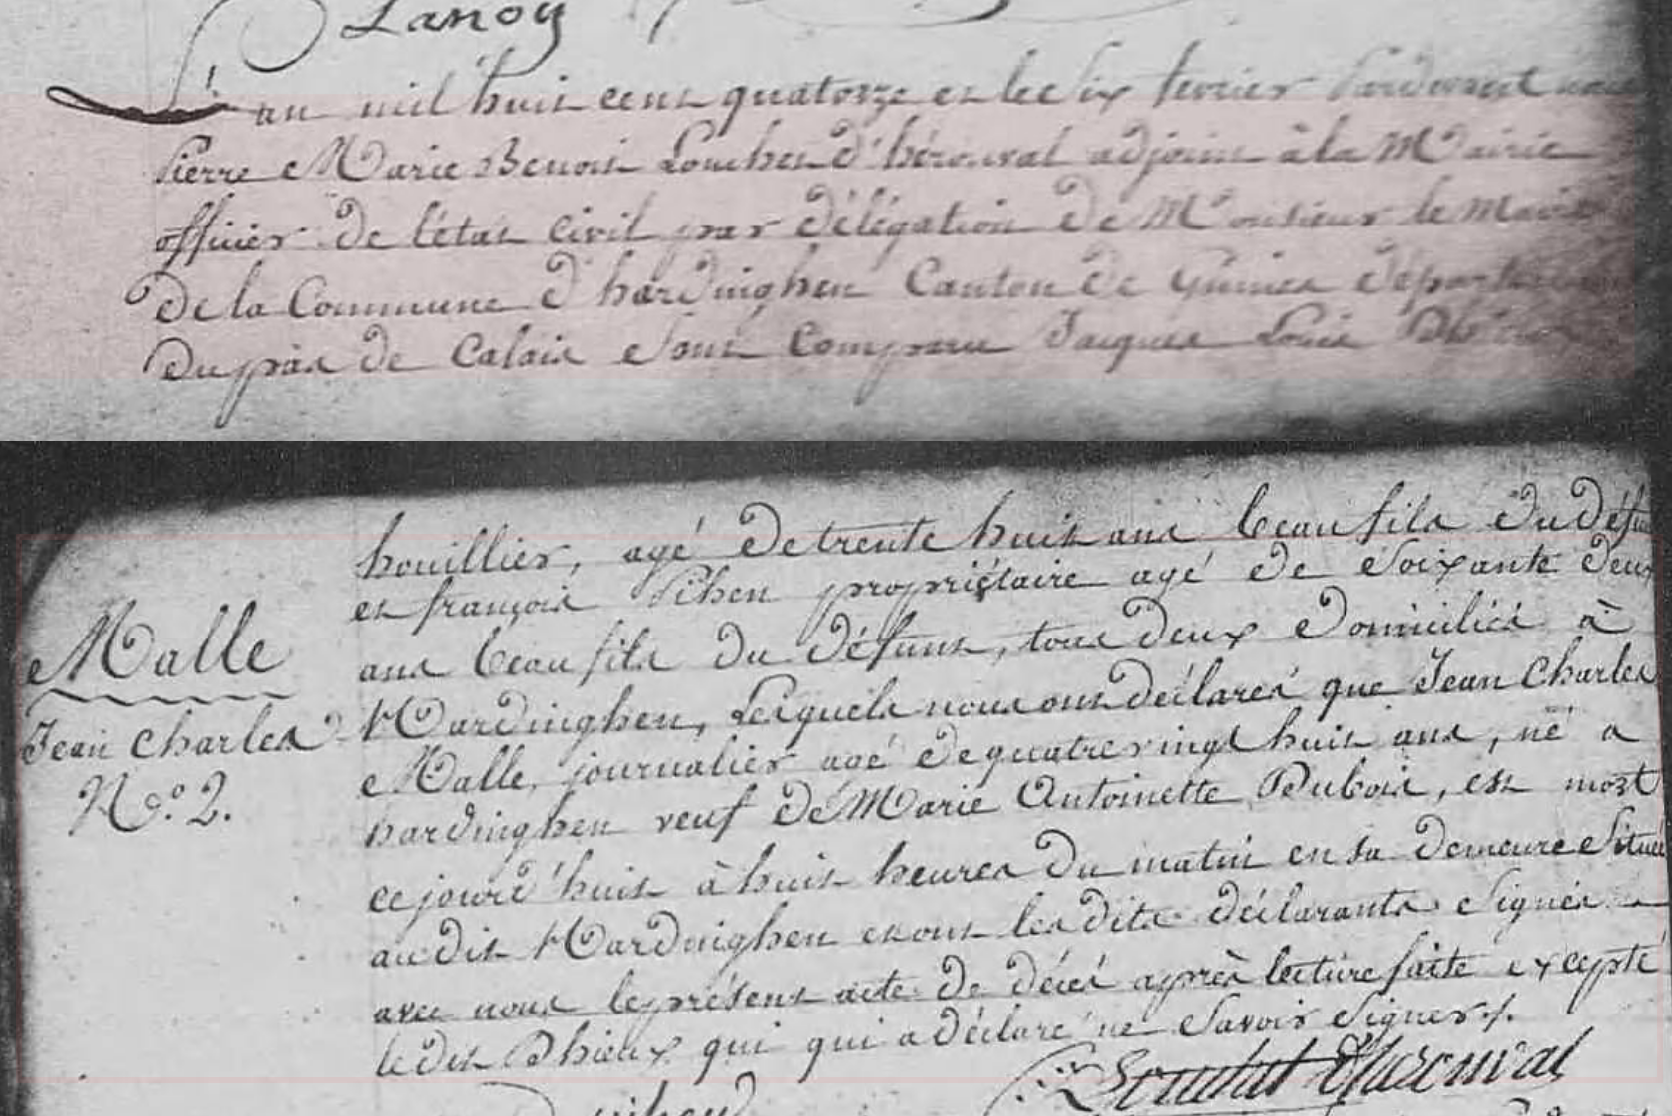 Lanoy
L'an mil huit cent quatorze et le Six fevrier Pardevant nous
Pierre Marie Benoit Louches d'hérouval adjoint à la Mairie
officier de l'état civil par délégation de Monsieur le Maire
De la Commune d'hardinghen Canton de Guines départ
Du pas de Calais Sont Comparu Jacques Louis
houillier, agé De trente huit ans beau fils Du défu
et françois Pihen propriétaire agé de Soixante deux
ans beau fils Du défunt, tous deux Domiciliés à
Malle
Hardinghen, Lesquels nous ont déclarés que Jean Charles
Jean Charles
Malle, journalier agé de quatrevingt huit ans, né a
N.º 2.
hardinghen veuf De Marie Antoinette Dubois, est mort
ce jourd'huit à huit heures du matin en sa demeure Située
au dit Hardinghen et ont les dits déclarants Signés
avec nous le présent acte de décès après lecture faite excepté
le dit Dhieux qui qui a déclaré ne Savoir Signer ./.
pihen